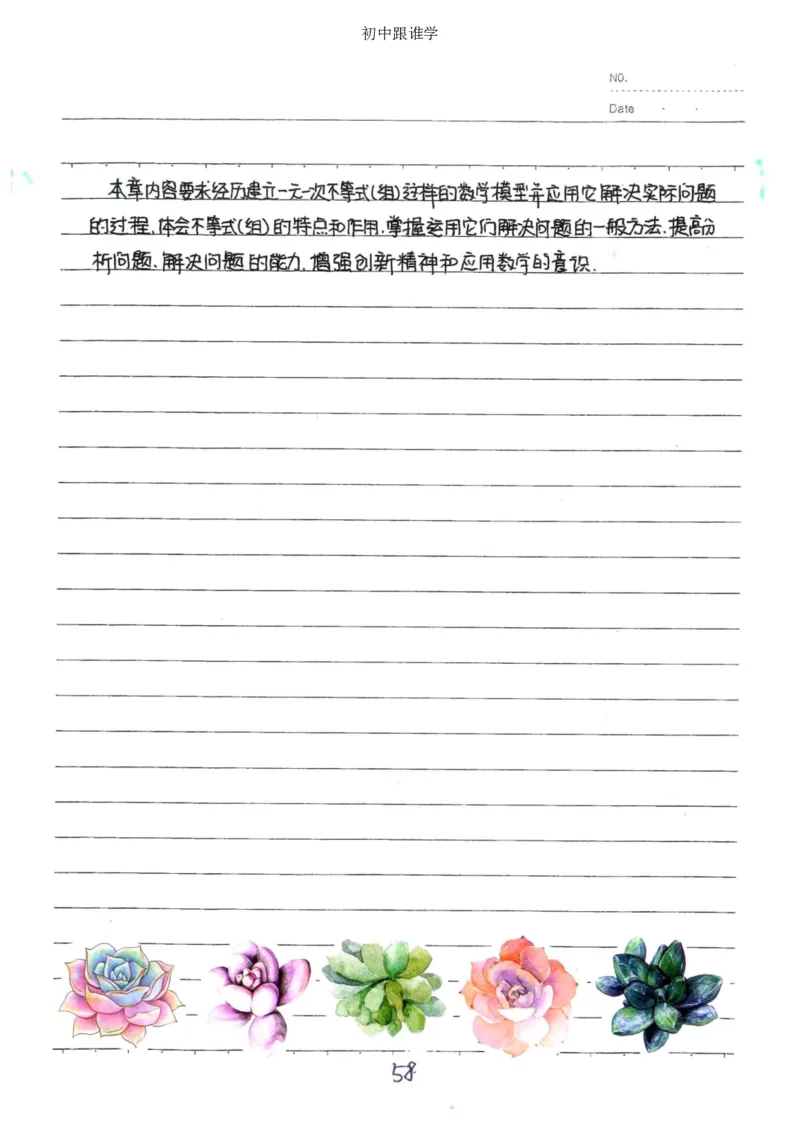 初中跟谁学
NO.
Date
本章内容要求经历建立一元一次不等式(组)这样的数学模型并应用它解决实际问题
的过程,体会不等式(组)的特点和作用.掌握运用它们解决问题的一般方法.提高分
析问题、解决问题的能力.增强创新精神和应用数学的意识.
58.